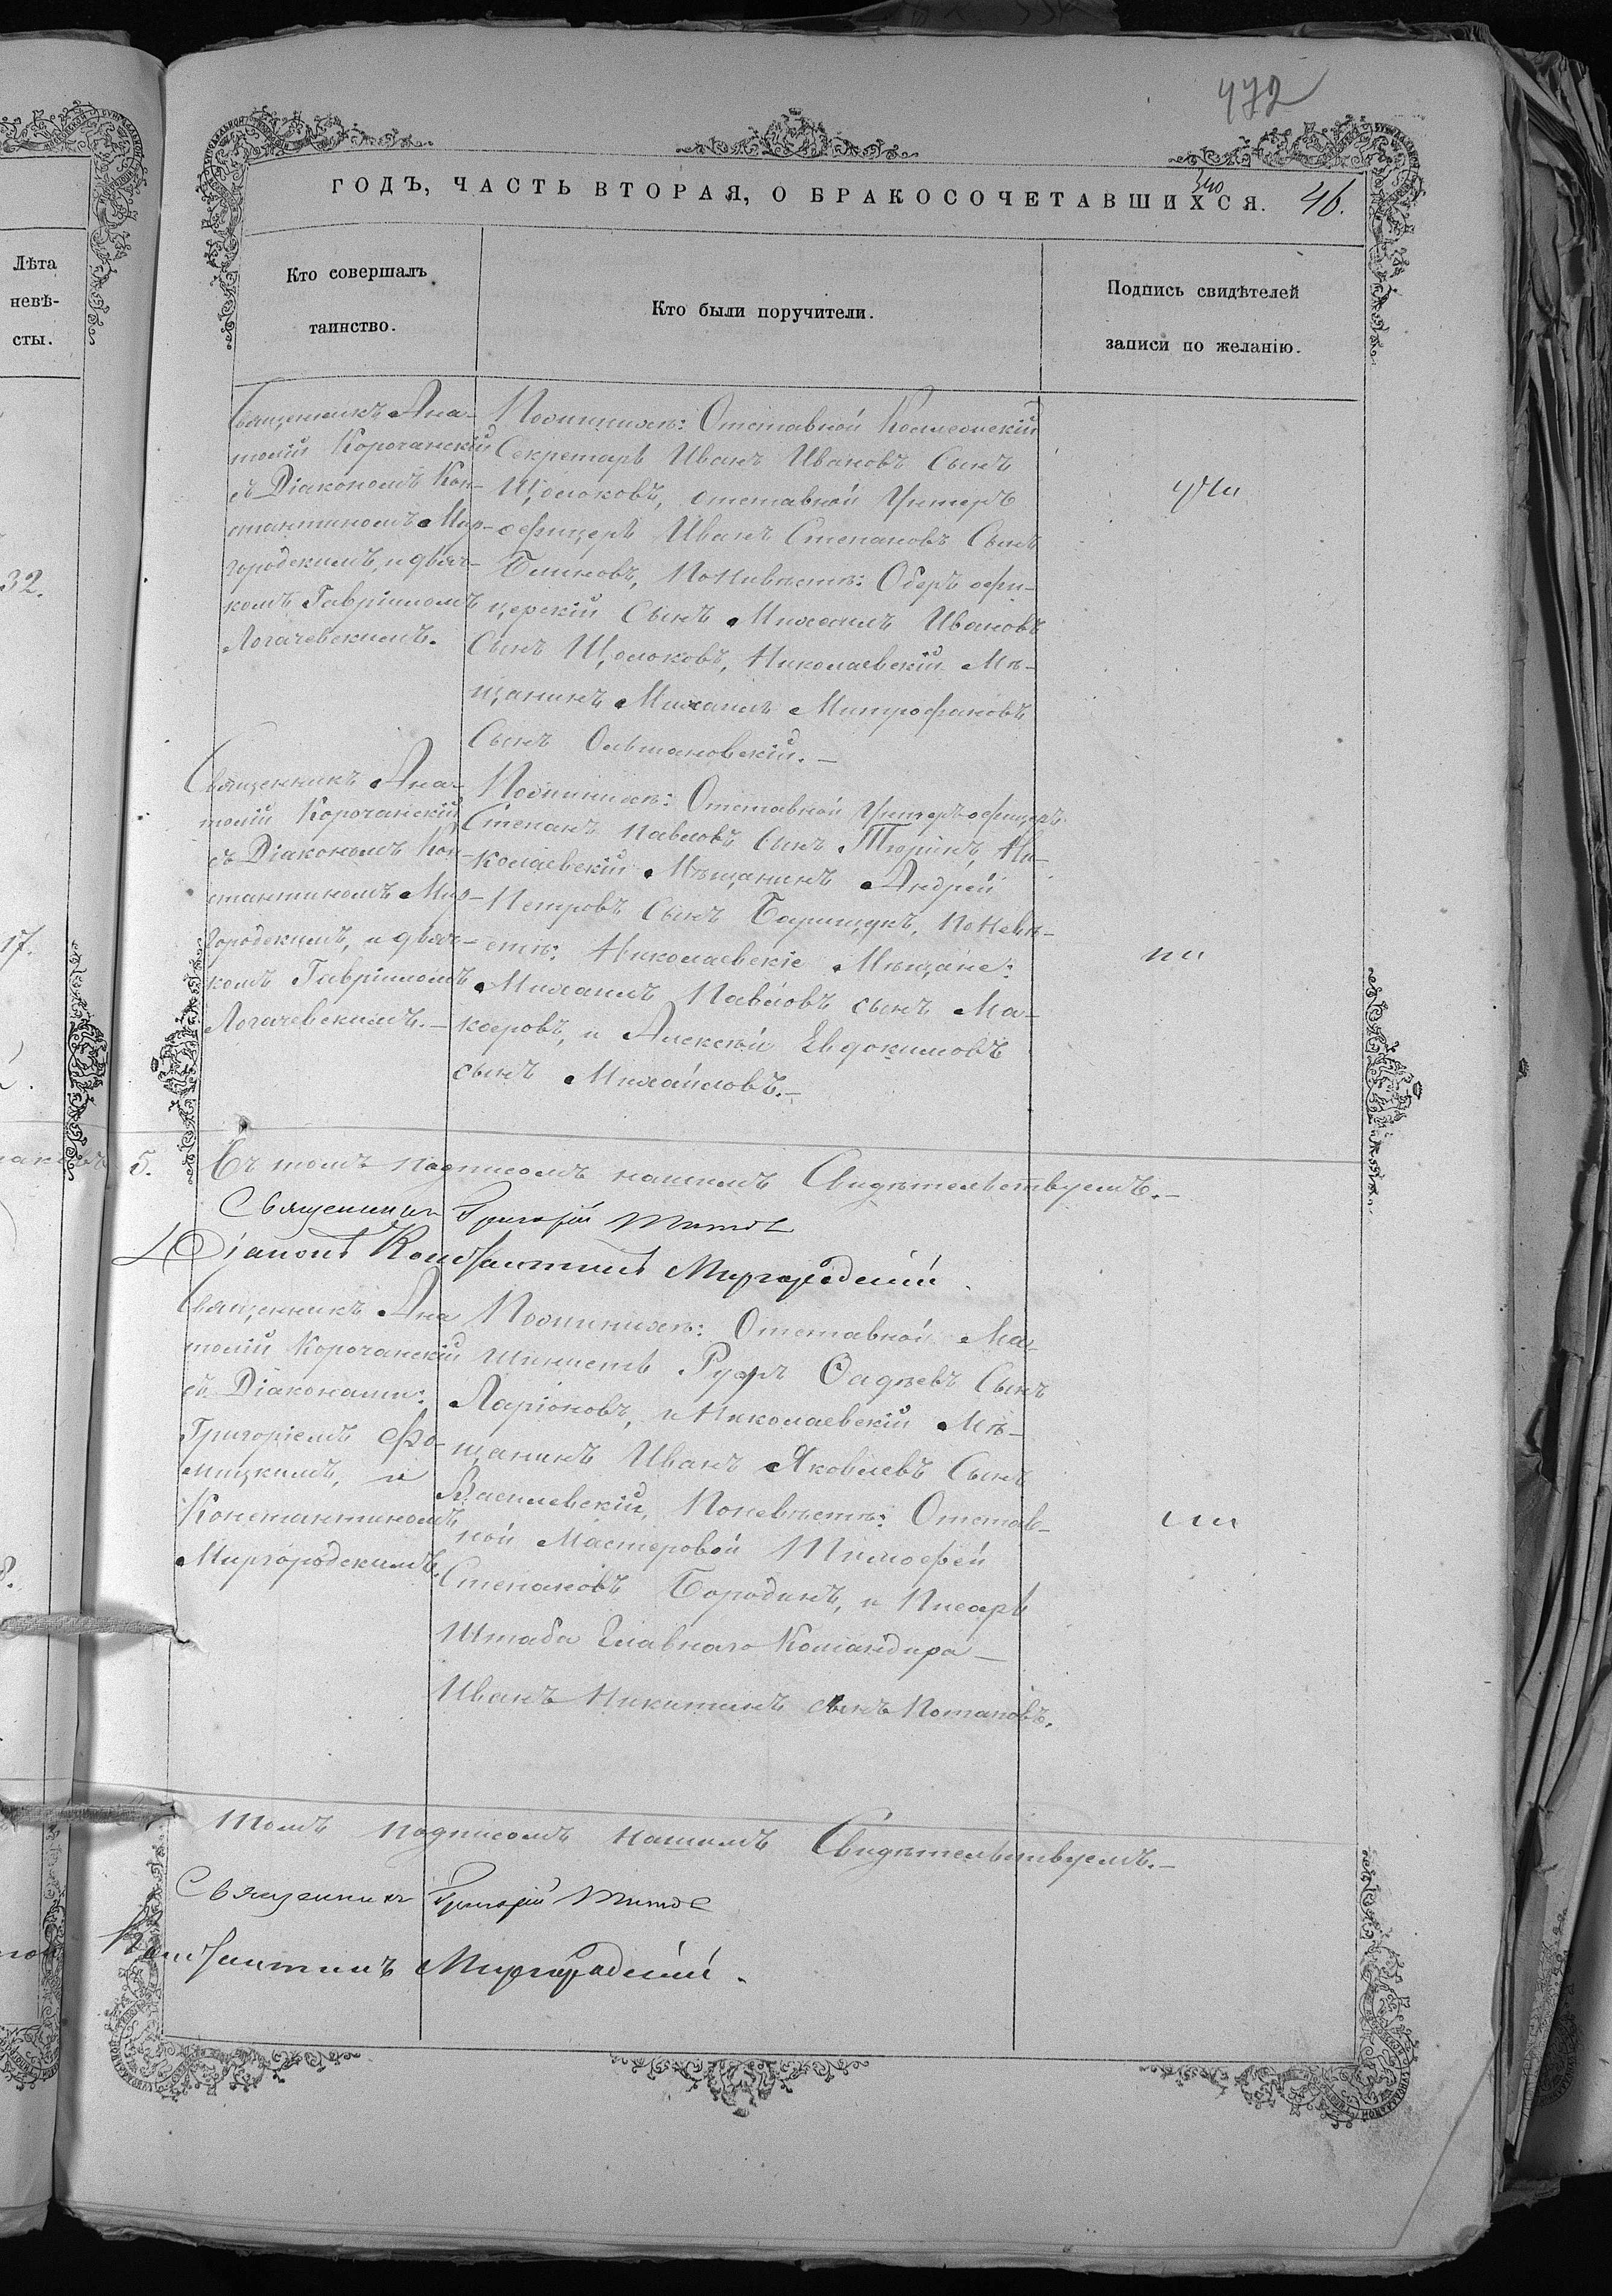 472
ГОДЪ, ЧАСТЬ ВТОРАЯ, О БРАКОСОЧЕТАВШИХСЯ.
340
46.
Лѣта
невѣ-
сты.
Кто совершалъ
таинство.
Кто были поручители.
Подпись свидѣтелей
записи по желанію.
32.
Священникъ Ана-
толій Корочанскій
съ Діакономъ Кон-
стантиномъ Мир-
городскимъ, и дьяч-
комъ Гавріиломъ
Логачевскимъ.
По женихѣ: Отставной Коллежскій
Секретарь Иванъ Ивановъ Сынъ
Щолоковъ, отставной Унтеръ
офицеръ Иванъ Степановъ Сынъ
Блиновъ, По Невѣстѣ: Оберъ офи-
церскій Сынъ Михаилъ Ивановъ
Сынъ Щолоковъ, Николаевскій Мѣ-
щанинъ Михаилъ Митрофановъ
Сынъ Ольшановскій.
17.
Священникъ Ана-
толій Корочанскій
съ Діакономъ Кон-
стантиномъ Мир-
городскимъ, и дьяч-
комъ Гавріиломъ
Логачевскимъ.
По женихѣ: Отставной Унтеръ-офицеръ
Степанъ Павловъ Сынъ Тюринъ, Ни-
колаевскій Мѣщанинъ Андрей
Петровъ Сынъ По Невѣ-
стѣ: Николаевскіе Мѣщане:
Михаилъ Павловъ сынъ Ма-
и Алексѣй Евдокимовъ
сынъ Михайловъ.
5.
Въ томъ подписомъ нашимъ Свидѣтельствуемъ.
Священникъ Григорій Титовъ
Діаконъ Константинъ Миргородскій.
Священникъ Ана
толій Корочанскій
съ Діаконами:
Григоріемъ Фо-
мицкимъ, и
Константиномъ
Миргородскимъ.
По женихѣ: Отставной Ма-
шинистъ Руфъ Фадѣевъ Сынъ
Ларіоновъ, и Николаевскій Мѣ-
щанинъ Иванъ Яковлевъ Сынъ
Василевскій, По невѣстѣ: Отстав-
ной Мастеровой Тимофей
Степановъ Бородинъ, и Писарь
Штаба Главнаго Командира
Иванъ Никитинъ сынъ Потаповъ.
8.
Томъ подписомъ нашимъ Свидѣтельствуемъ.
Священникъ Григорій Титовъ
Константинъ Миргородскій.